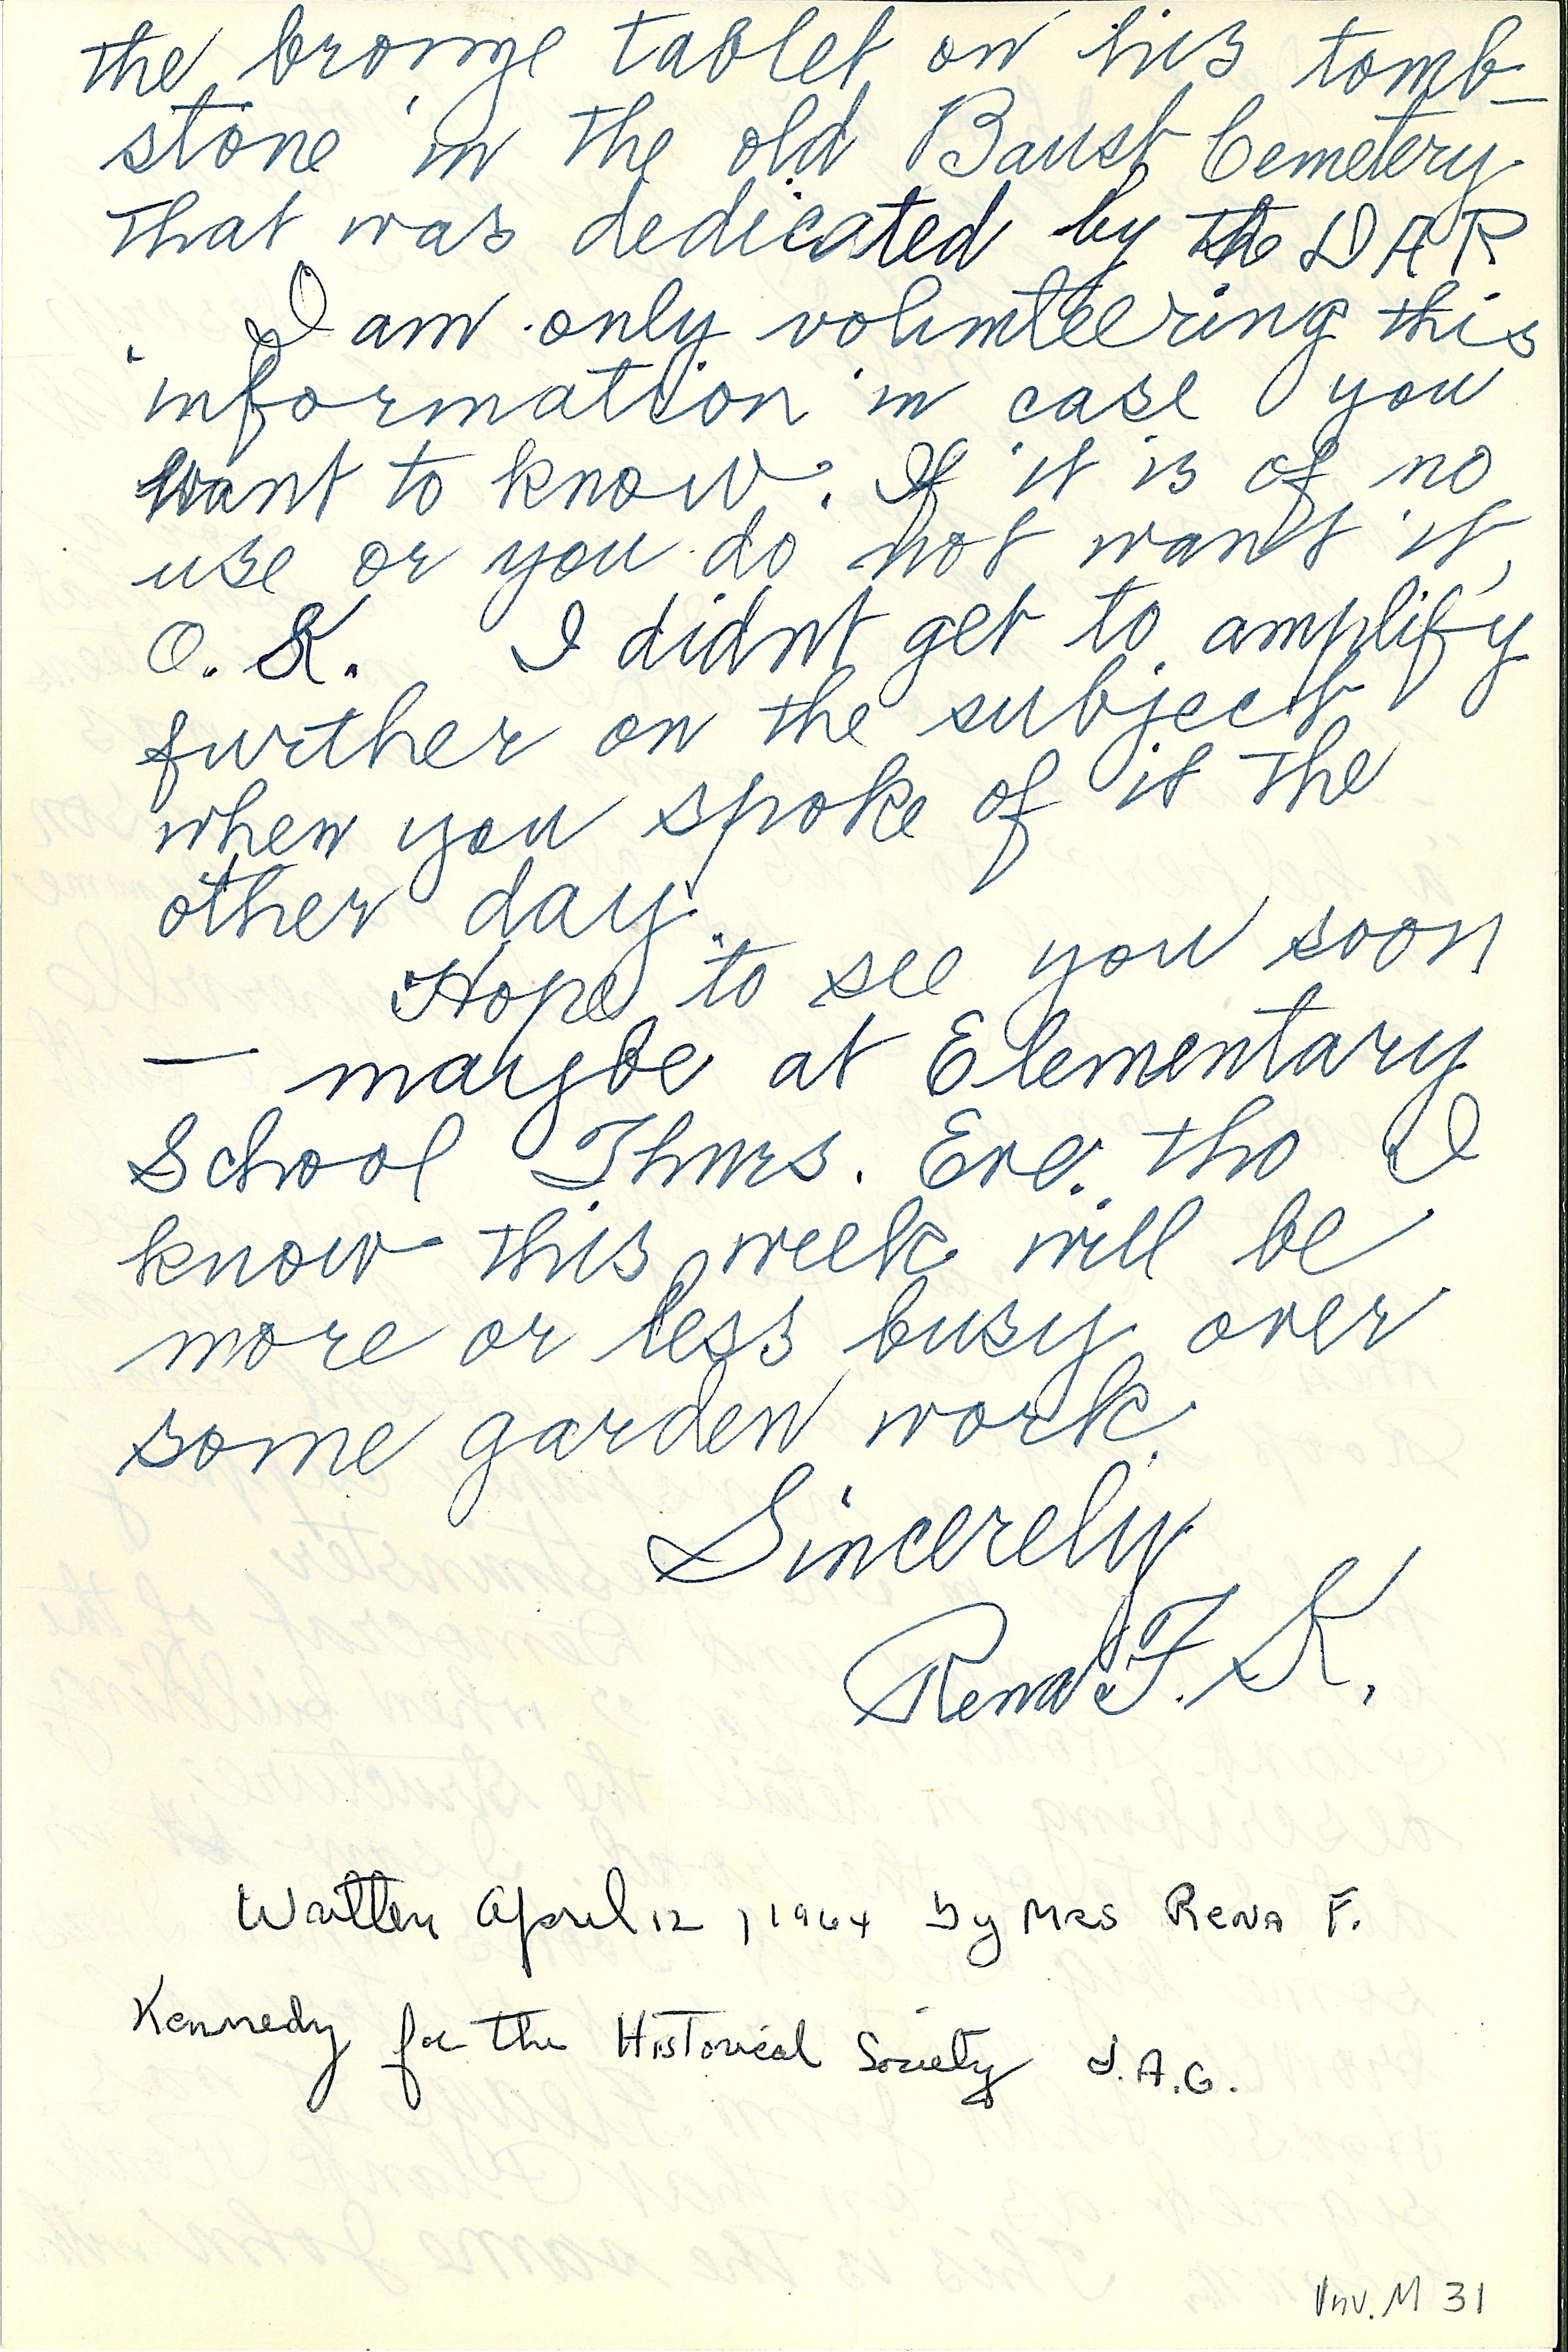 the bronze tablet on his tomb-
stone in the old Baust Cemetery
that was dedicated by the DAR
I am only volunteering this
information in case you
want to know. If it is of no
use or you do not want it,
O. K. I didnt get to amplify
further on the subject
when you spoke of it the
other day.
Hope to see you soon
— maybe at Elementary
School Thurs. Eve. tho I
know this week will be
more or less busy over
some garden work.
Sincerely
Rena F. K.
Written April 12, 1964 by Mrs Rena F.
Kennedy for the Historical Society J.A.G.
Inv. M 31